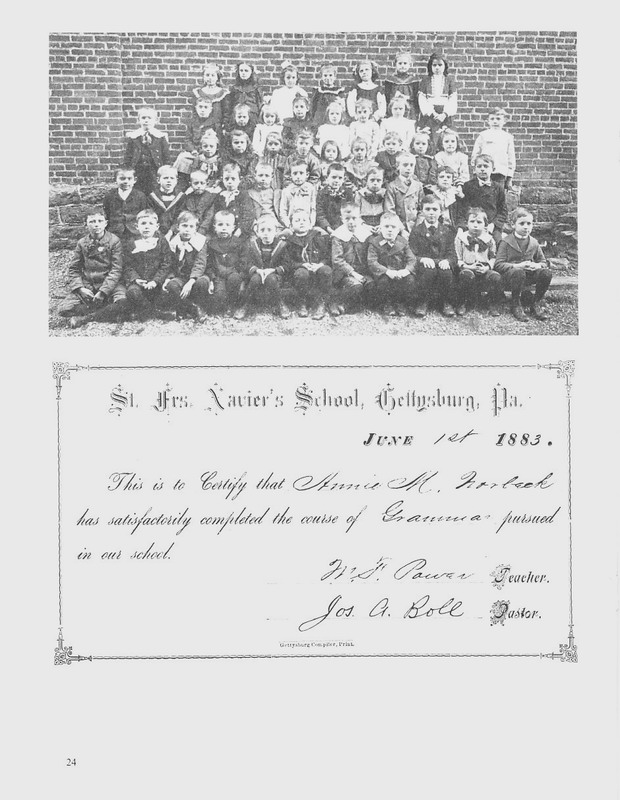 St. Frs. Xavier's School, Gettysburg, Pa.
JUNE 1st 1883.
This is to Certify that Annie M. Norbeck
has satisfactorily completed the course of Grammar pursued
in our school.
W. F. Power Teacher.
Jos. A. Boll Pastor.
Gettysburg Compiler, Print.
24